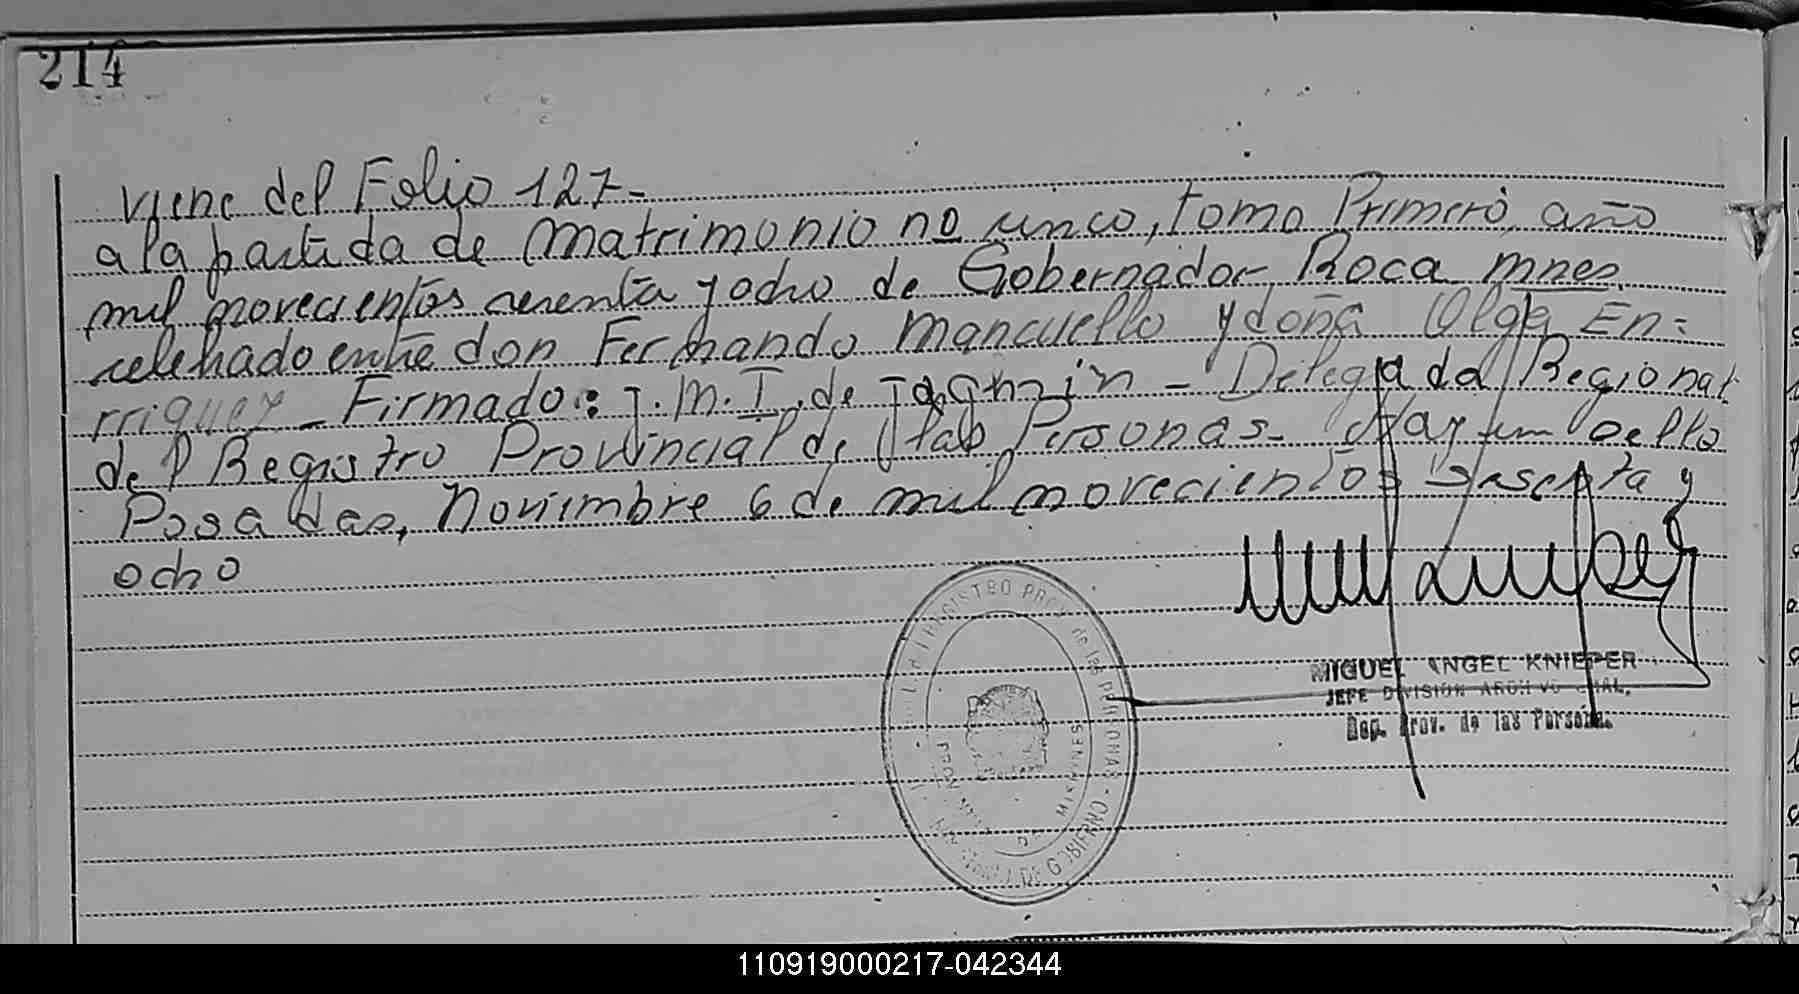 214
Viene del Folio 127-
a la partida de Matrimonio no cinco, tomo Primero, año
mil novecientos cuarenta y ocho de Gobernador Roca Mnes.
celebrado entre don Fernando Mancuello y doña Olga En=
rriquez - Firmado: J. M. T. de - Delegada Regional
del Registro Provincial de las Personas - Hay un sello
Posadas, Noviembre 6 de mil novecientos sesenta y
ocho
MIGUEL ANGEL KNIEPER
JEFE DIVISION ARCHIVO GRAL.
Reg. Prov. de las Personas
REGISTRO PROV. de las PERSONAS
PROVINCIA DE MISIONES
110919000217-042344